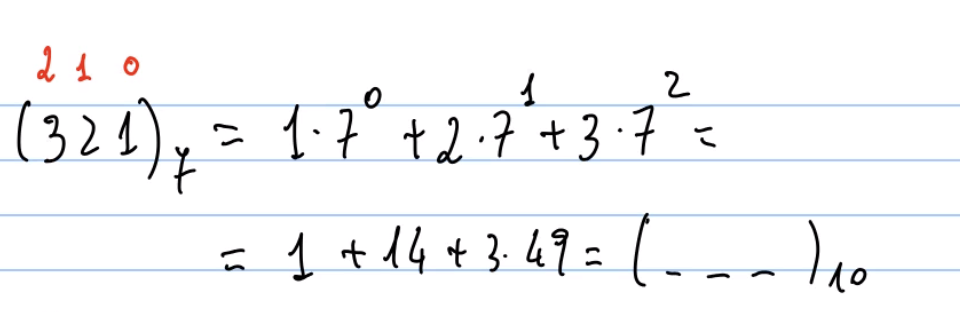 2 1 0
(321)₇ = 1·7⁰ + 2·7¹ + 3·7² =
= 1 + 14 + 3·49 = (_ _ _)₁₀